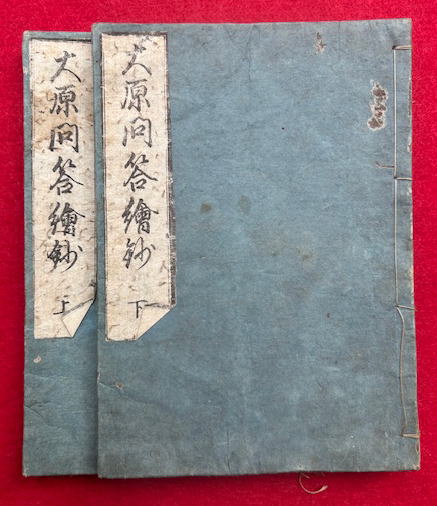 大原問答繪鈔 上
大原問答繪鈔 下